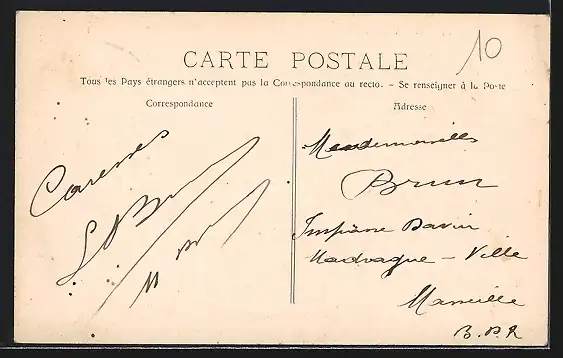 10
CARTE POSTALE
Tous les Pays étrangers n'acceptent pas la Correspondance au recto. - Se renseigner à la Poste
Correspondance
Adresse
Caresses
Mesdemoiselles
Brun
Impasse
Ville
Marseille
B. D. R